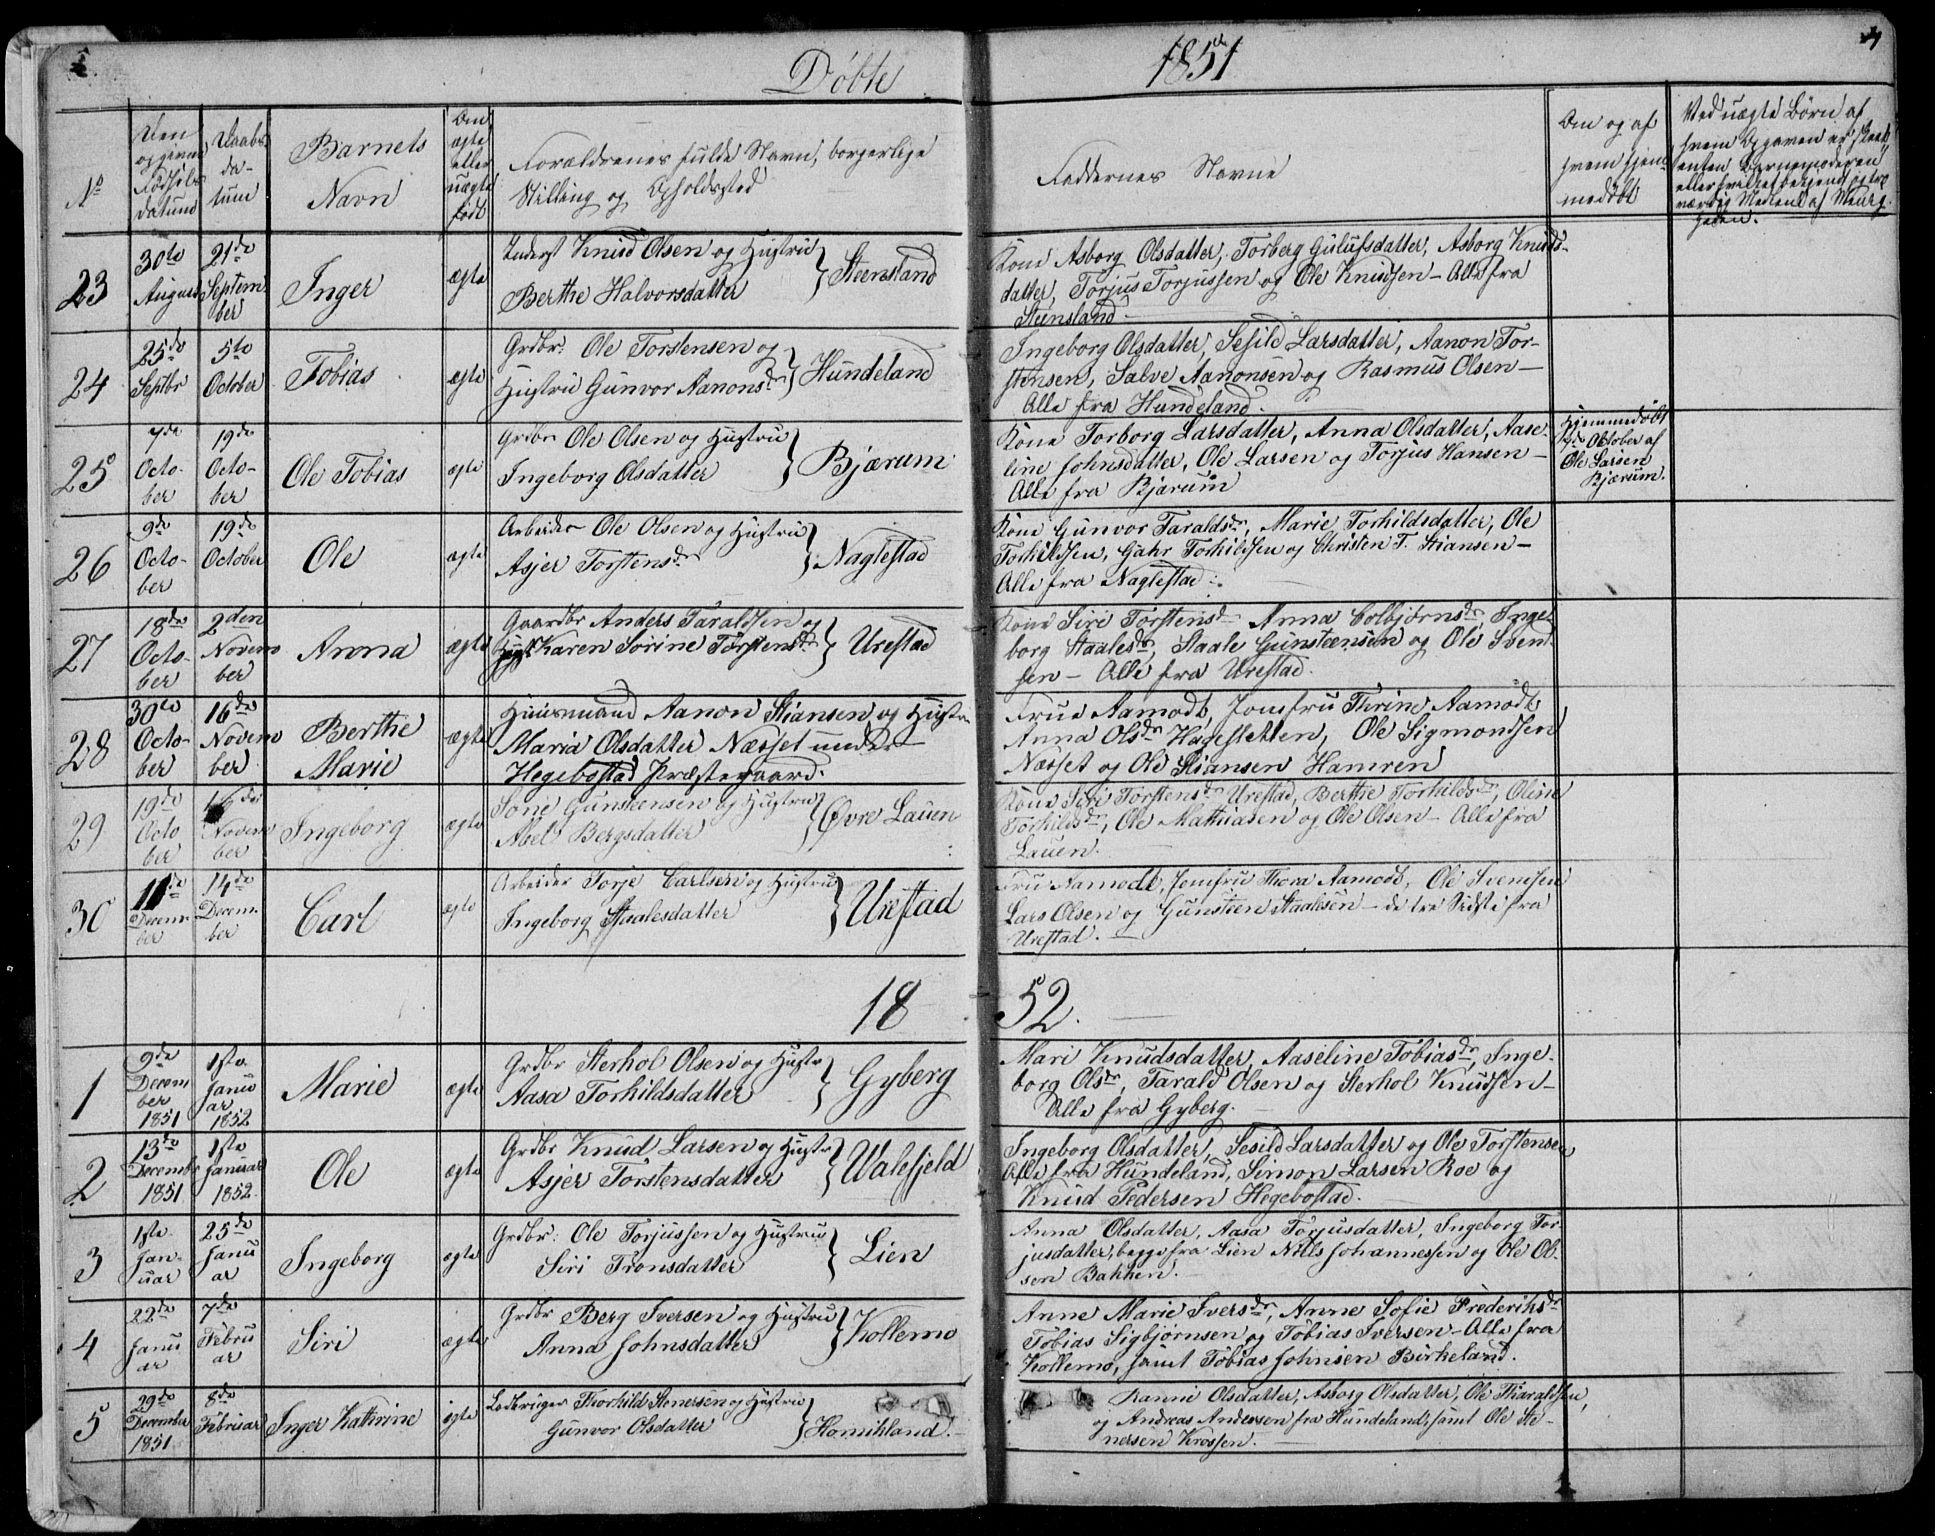 Döbte 1851
No
Den opgivne Fødsels datum
Daabs da-tum
Barnets Navn
Om ægte eller uægte født
Forældrenes fulde Navn, borgerlige
Stilling og Opholdssted
Faddernes Navne
Om og af hvem hjem medöbt
Ved uægte Börn af
hvem Opgaven er
enten Barnemoderen
eller
værdig Mænd af Menig
heden.
23
30te August
21de Septem ber
Inger
ægte
Inderst Knud Olsen og Hustru
Berthe Halvorsdatter } Steensland
Kone Asborg Olsdatter, Torberg Gulufsdatter, Asborg Knuds-
datter, Torjus Torjussen og Ole Knudsen - Alle fra
Steensland.
24
25de Septbr
5te October
Tobias
ægte
Grdbr: Ole Torstensen og
Hustru Gunvor Aanonsdr } Hundeland
Ingeborg Olsdatter, Sesild Larsdatter, Aanon Tor-
stensen, Salve Aanonsen og Rasmus Olsen -
Alle fra Hundeland.
25
7de Octo-ber
19de Octo-ber
Ole Tobias
ægte
Grdbr Ole Olsen og Hustru
Ingeborg Olsdatter } Bjærum
Kone Torborg Larsdatter, Anna Olsdatter, Aase-
line Johnsdatter, Ole Larsen og Torjus Hansen -
Alle fra Bjærum
Hjemmedöbt
7de Oktober af
Ole Larsen
Bjærum.
26
9de Octo-ber
19de October
Ole
ægte
Arbeider Ole Olsen og Hustru
Asjer Torstensdr } Naglestad
Kone Gunvor Taraldsdr, Marie Torkildsdatter, Ole
Torkildsen, Gahr Torkildsen og Christen T. Stiansen -
Alle fra Naglestad.
27
18de Octo-ber
2den Novem ber
Anna
ægte
Gaardbr Anders Taraldsen og
Karen Sorine Torstensdr } Urestad
Kone Siri Torstensd Anna Colbjörnsdr, Inge-
borg Staalesdr, Staale Gunsteensen og Ole Svent-
sen - Alle fra Urestad.
28
30te Octo-ber
16de Novem ber
Berthe Marie
ægte
Huusmand Aanon Stiansen og Hustr
Maria Olsdatter Næsset under
Hegebostad Præstegaard.
Frue Aamodt, Jomfru Thrine Aamodt
Anna Olsdr Hagesletten, Ole Sigmondsen
Næsset og Ole Stiansen Hamren
29
19de Octo ber
Novem ber
Ingeborg
ægte
Sone Gunsteensen og Hustru
Abel Bergsdatter } Øvre Lauen
Kone Siri Torstensdr Urestad, Berthe Torkildsdr, Oline
Torkildsdr, Ole Mathiasen og Ole Olsen - Alle fra
Lauen.
30
11de Decem-ber
14de Decem-ber
Carl
ægte
Arbeider Torje Carlsen og Hustru
Ingeborg Staalesdatter } Urestad
Fru Aamodt, Jomfru Thora Aamodt, Ole Svensen
Lars Olsen og Gunsteen Staalesen - de tre Sidste fra
Urestad.
1852.
1
9de Decem ber 1851
1ste Janu ar 1852
Marie
ægte
Grdbr Sterhol Olsen og Hustr
Aasa Torkildsdatter } Gyberg
Mari Knudsdatter, Aaseline Tobiasdr, Inge-
borg Olsdr, Tarald Olsen og Sterhol Knudsen -
Alle fra Gyberg.
2
13de Decembr 1851
1ste Januar 1852.
Ole
ægte
Grdbr Knud Larsen og Hustr
Asjer Torstensdatter } Walefjeld
Ingeborg Olsdatter, Sesild Larsdatter og Ole Torstensen
Alle fra Hundeland, Simon Larsen Roe og
Knud Pedersen Hegebostad.
3
1ste Jan-uar
25de Janu ar
Ingeborg
ægte
Grdbr: Ole Torjussen og Hustru
Siri Tronsdatter } Lien
Anna Olsdatter, Aasa Torjusdatter, Ingeborg Tor-
jusdatter, begge fra Lien Nills Johannessen og Ole Ol-
sen Bakken.
4
22de Janu ar
7de Febru ar
Siri
ægte
Grdbr Berg Iversen og Hustru
Anna Johnsdatter } Kollemo
Anne Marie Iversdr, Anne Sofie Frederiksdr
Tobias Sigbjørnsen og Tobias Iversen - Alle fra
Kollemo, samt Tobias Johnsen Birkeland.
5
29de December 1851
8de Februar
Inger Kathrine
ægte
Thorkild Stenersen og Hustru
Gunvor Olsdatter } Homikland.
Ranni Olsdatter, Asborg Olsdatter, Ole Tharaldsen,
og Andreas Andersen fra Hundeland, samt Ole Ste-
nersen Krossen.